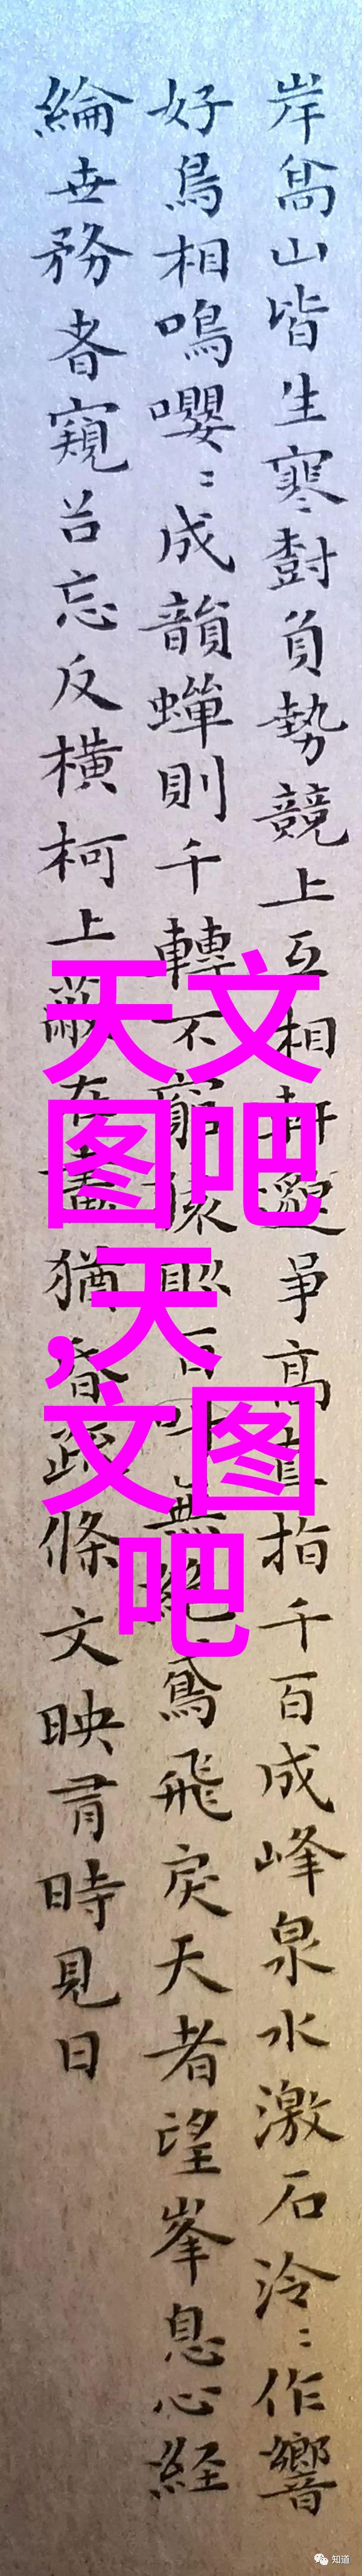 岸髙山皆生寒樹負勢競上互相軒邈爭高直指千百成峰泉水激石泠〻作響
好鳥相鳴嚶〻成韻蟬則千轉不窮猿則百叫無絕鳶飛戾天者望峯息心経
綸世務者窺谷忘反橫柯上蔽在晝猶昏疏條文映有時見日
天文
图吧
,天
文图
吧
知道